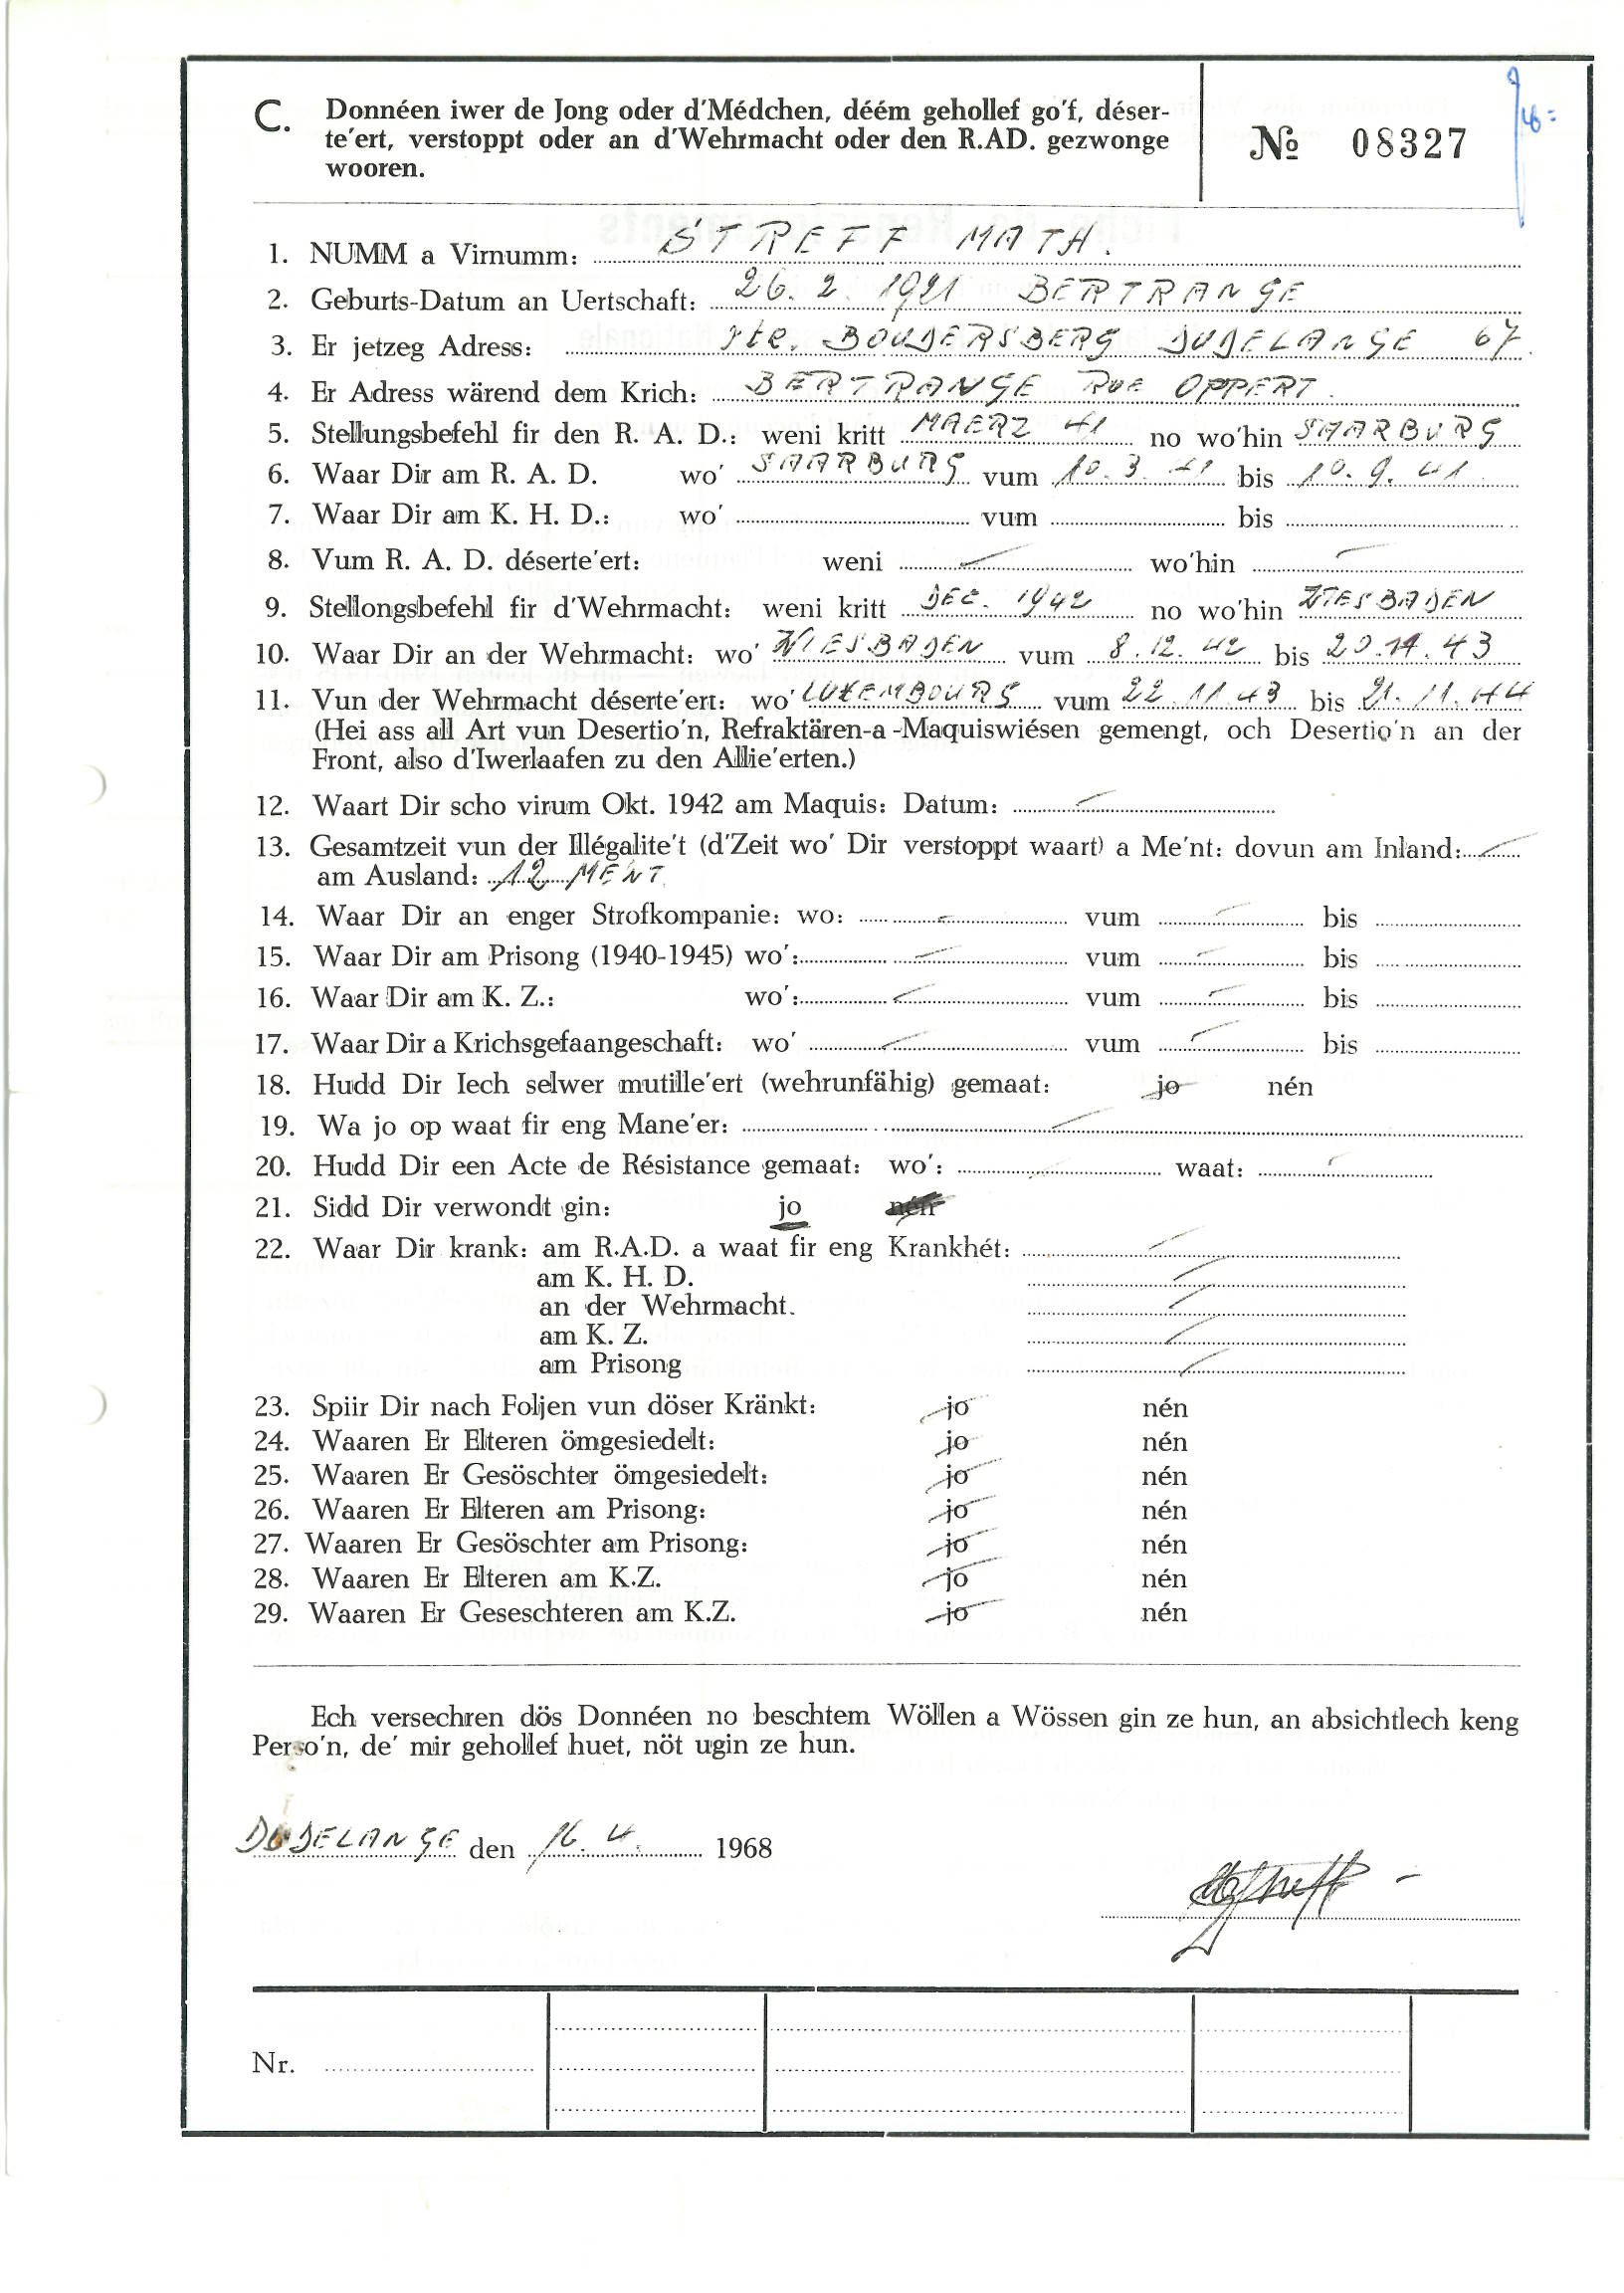 C. Donnéen iwer de Jong oder d'Médchen, déém gehollef go'f, déser-
te'ert, verstoppt oder an d'Wehrmacht oder den R.AD. gezwonge
wooren.
№ 08327
1. NUMM a Virnumm: STREFF MATH.
2. Geburts-Datum an Uertschaft: 26. 2. 1921 BERTRANGE
3. Er jetzeg Adress: rte. BOUDERSBERG DUDELANGE 67
4. Er Adress wärend dem Krich: BERTRANGE RUE OPPERT.
5. Stellungsbefehl fir den R. A. D.: weni kritt MAERZ 41 no wo'hin SAARBURG
6. Waar Dir am R. A. D. wo' SAARBURG vum 10. 3. 41 bis 10. 9. 41
7. Waar Dir am K. H. D.: wo' vum bis
8. Vum R. A. D. déserte'ert: weni wo'hin
9. Stellongsbefehl fir d'Wehrmacht: weni kritt DEC. 1942 no wo'hin WIESBADEN
10. Waar Dir an der Wehrmacht: wo' WIESBADEN vum 8. 12. 42 bis 20. 11. 43
11. Vun der Wehrmacht déserte'ert: wo' LUXEMBOURG vum 22. 11. 43 bis 21. 11. 44
(Hei ass all Art vun Desertio'n, Refraktären-a-Maquiswiésen gemengt, och Desertio'n an der
Front, also d'Iwerlaafen zu den Allie'erten.)
12. Waart Dir scho virum Okt. 1942 am Maquis: Datum:
13. Gesamtzeit vun der Illégalite't (d'Zeit wo' Dir verstoppt waart) a Me'nt: dovun am Inland:
am Ausland: 12 ME'NT
14. Waar Dir an enger Strofkompanie: wo: vum bis
15. Waar Dir am Prisong (1940-1945) wo': vum bis
16. Waar Dir am K. Z.: wo': vum bis
17. Waar Dir a Krichsgefaangeschaft: wo' vum bis
18. Hudd Dir Iech selwer mutille'ert (wehrunfähig) gemaat: jo nén
19. Wa jo op waat fir eng Mane'er:
20. Hudd Dir een Acte de Résistance gemaat: wo': waat:
21. Sidd Dir verwondt gin: jo nén
22. Waar Dir krank: am R.A.D. a waat fir eng Krankhét:
am K. H. D.
an der Wehrmacht.
am K. Z.
am Prisong
23. Spiir Dir nach Foljen vun döser Kränkt: jo nén
24. Waaren Er Elteren ömgesiedelt: jo nén
25. Waaren Er Gesöschter ömgesiedelt: jo nén
26. Waaren Er Elteren am Prisong: jo nén
27. Waaren Er Gesöschter am Prisong: jo nén
28. Waaren Er Elteren am K.Z. jo nén
29. Waaren Er Geseschteren am K.Z. jo nén
Ech versechren dös Donnéen no beschtem Wöllen a Wössen gin ze hun, an absichtlech keng
Perso'n, de' mir gehollef huet, nöt ugin ze hun.
DUDELANGE den 16. 4. 1968
Nr.